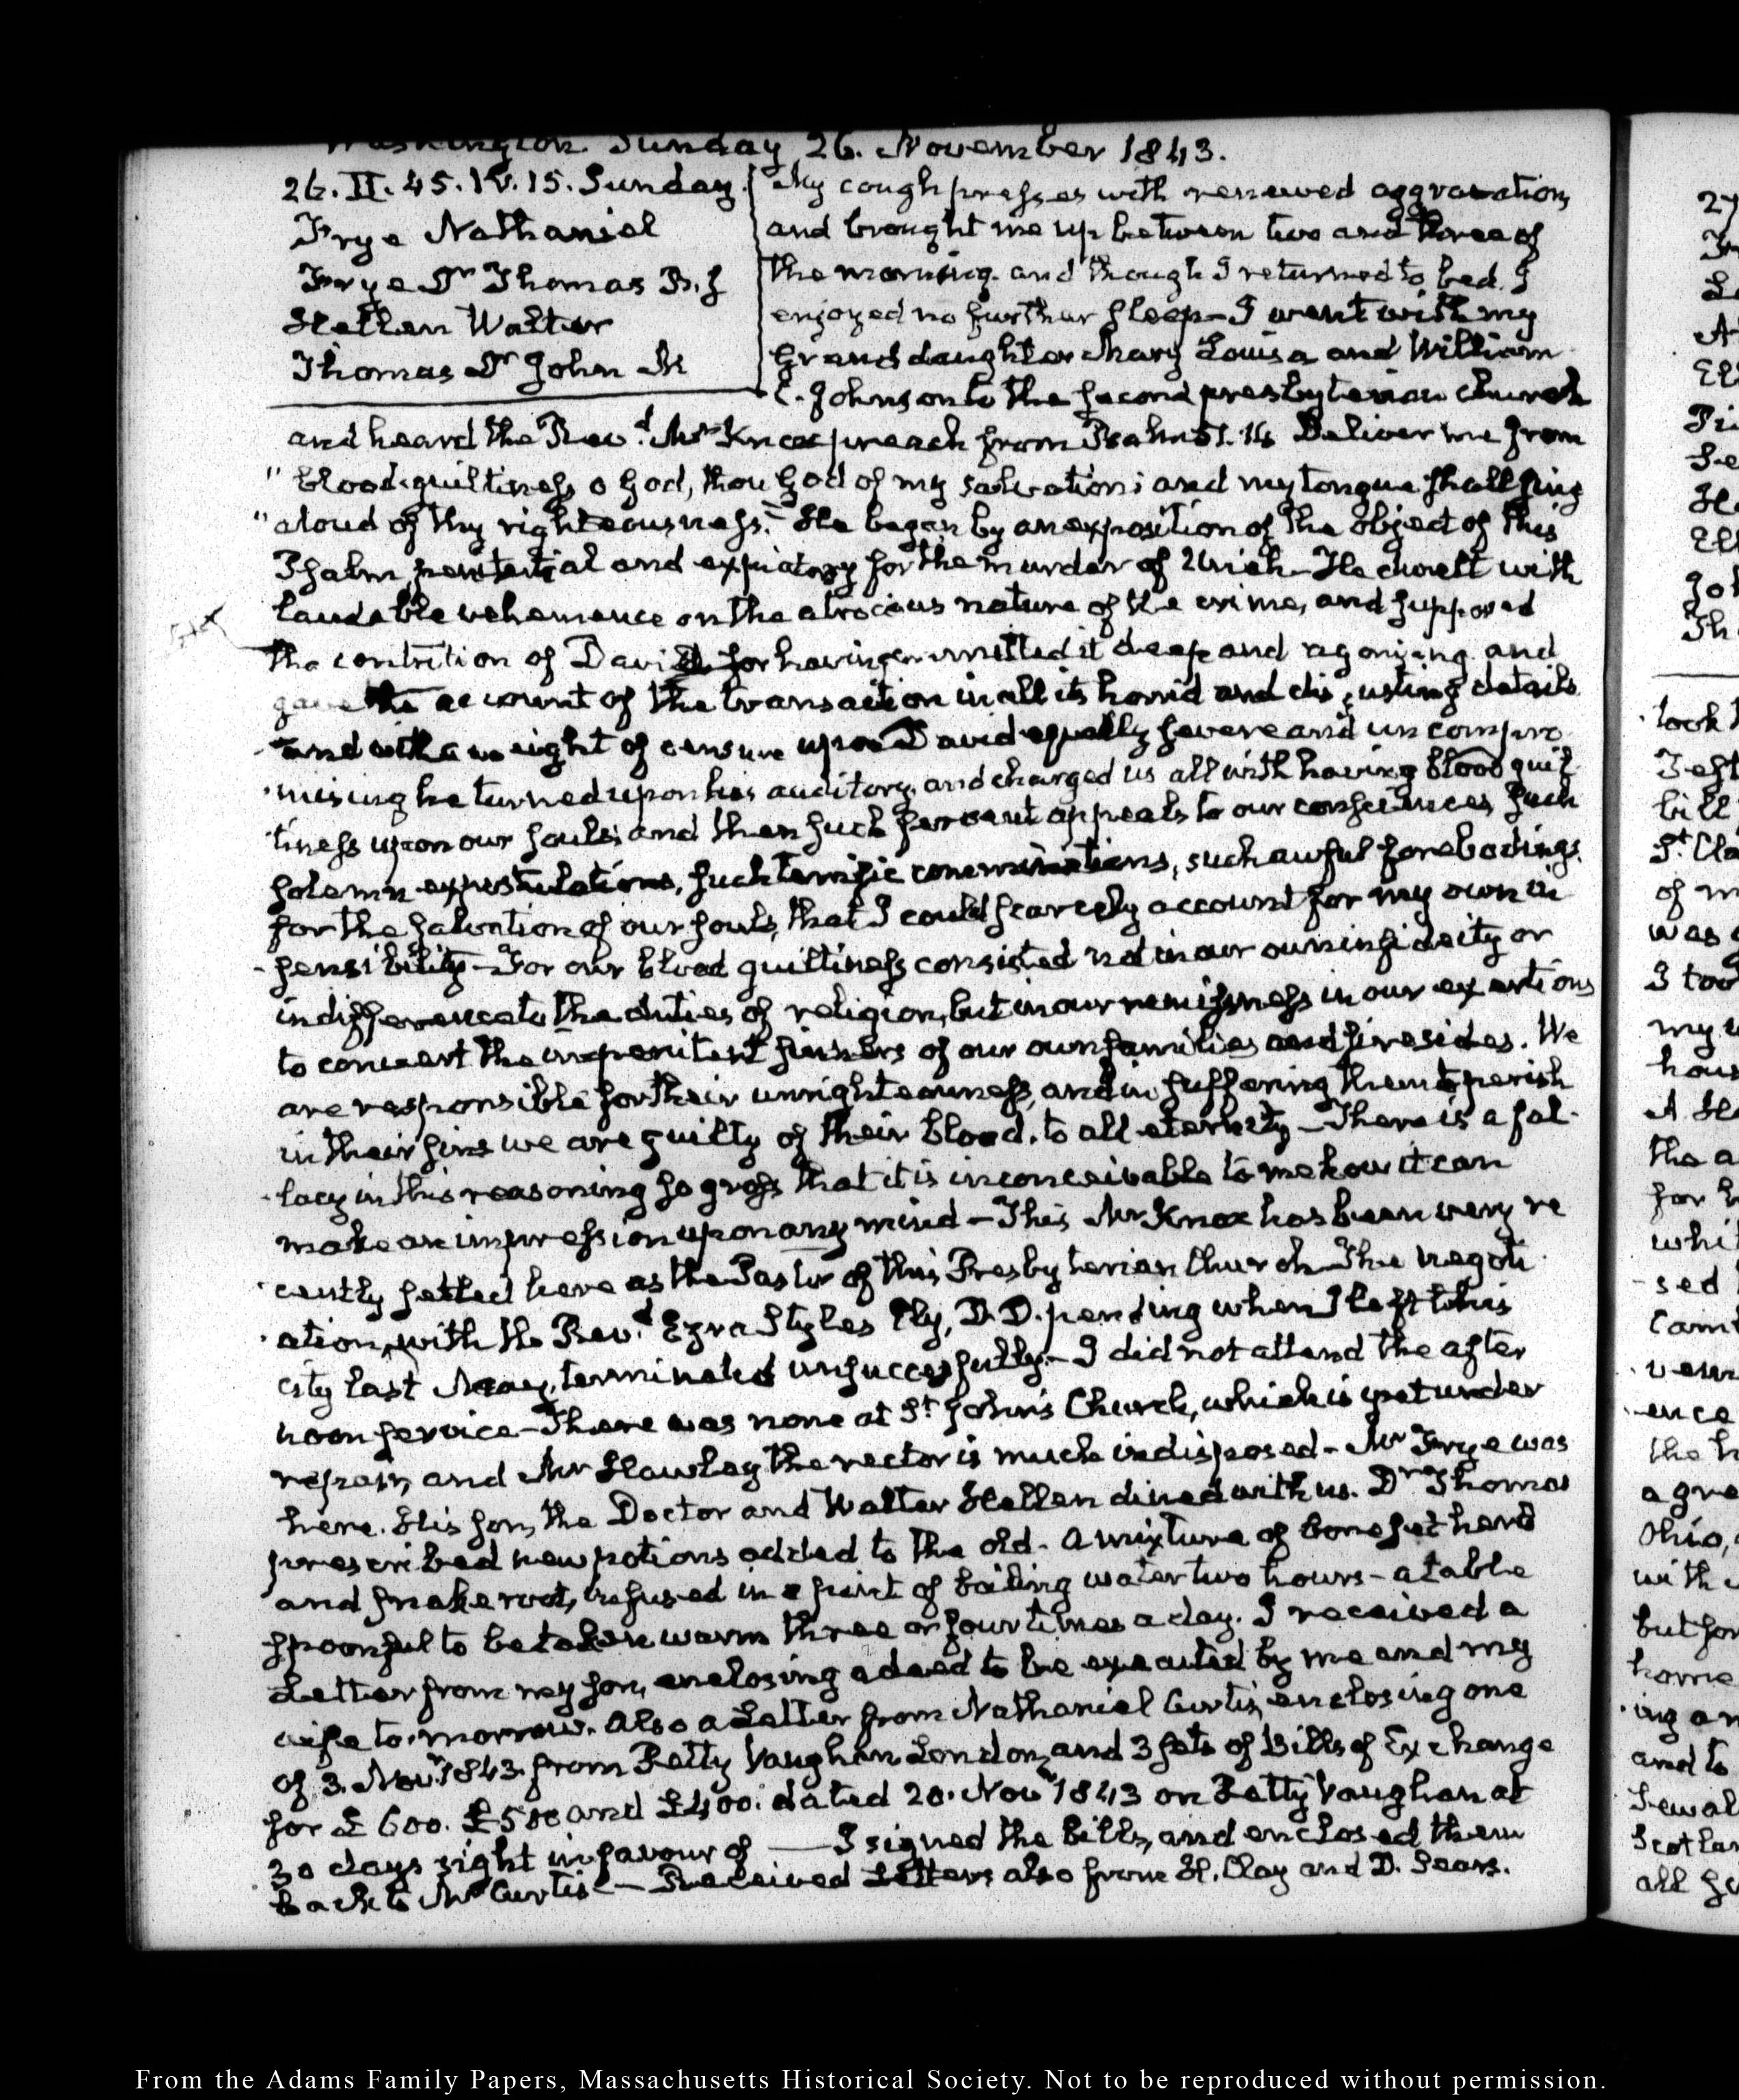 Washington Sunday 26. November 1843.
26. II. 45. IV. 15. Sunday.
Frye Nathaniel
Frye Dr Thomas B. J
Hellen Walter
Thomas Dr John M
My cough presses with renewed aggravation,
and brought me up between two and three of
the morning. and though I returned to bed. I
enjoyed no further sleep— I went with my
Grand daughter Mary Louisa and William
C. Johnson to the second presbyterian church
and heard the Revd. Mr Knox preach from Psalm 51. 14 Deliver me from
" blood-guiltiness, o God, thou God of my salvation; and my tongue shall sing
" aloud of thy righteousness." He began by an exposition of the object of this
Psalm penitential and expiatory for the murder of Uriah— He dwelt with
laudable vehemence on the atrocious nature of the crime, and supposed
the contrition of David for having committed it deep and agonizing. and
gave the account of the transaction in all its horrid and disgusting details
and with a weight of censure upon David equally severe and uncompro
mising he turned upon his auditory, and charged us all with having blood guil
tiness upon our souls; and then such fervent appeals to our consciences, such
solemn expostulations, such terrific comminations, such awful forebodings
for the salvation of our souls, that I could scarcely account for my own in
sensibility— For our blood guiltiness consisted not in our own infidelity or
indifference to the duties of religion, but in our remissness in our exertions
to convert the impenitent sinners of our own families and firesides. We
are responsible for their unrighteousness, and in suffering them to perish
in their sins we are guilty of their blood, to all eternity— There is a fal-
lacy in this reasoning so gross that it is inconceivable to me how it can
make an impression upon any mind— This Mr Knox has been very re
cently settled here as the Pastor of this Presbyterian Church— The negoti
ation, with the Revd. Ezra Styles Ely, D.D. pending when I left this
city last May, terminated unsuccessfully.— I did not attend the after
noon service— There was none at St John's Church, which is yet under
repair, and Mr Hawley the rector is much indisposed— Mr Frye was
here. His son, the Doctor and Walter Hellen dined with us. Dr Thomas
prescribed new potions added to the old— A mixture of boneset herb
and snake root, infused in a pint of boiling water two hours— a table
spoonful to be taken warm three or four times a day. I received a
Letter from my son, enclosing a deed to be executed by me and my
wife to-morrow. Also a Letter from Nathaniel Curtis, enclosing one
of 3. Novr. 1843. from Petty Vaughan London, and 3 sets of Bills of Exchange
for £600. £500 and £400. dated 20. Novr 1843 on Petty Vaughan at
30 days sight in favour of —— I signed the bills, and enclosed them
back to Mr Curtis— Received Letters also from H. Clay and D. Sears.
27
took
bill
St. Cla
of m
was
I too
my
hous
the a
whi
sed
ence
the h
a gre
Ohio,
with
but for
home
ing an
and to
Sewal
Scotlan
all
From the Adams Family Papers, Massachusetts Historical Society. Not to be reproduced without permission.